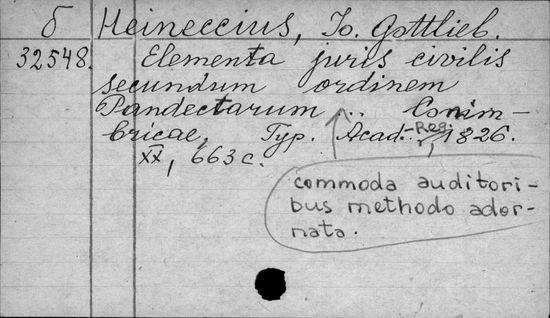 б Heineccius, Io. Gottlieb.
32548. Elementa juris civilis
secundum ordinem
Pandectarum ... Conim-
bricae, Typ. Acad.-Reg., 1826.
XX, 663 с.
commoda auditori-
bus methodo ador-
nata.